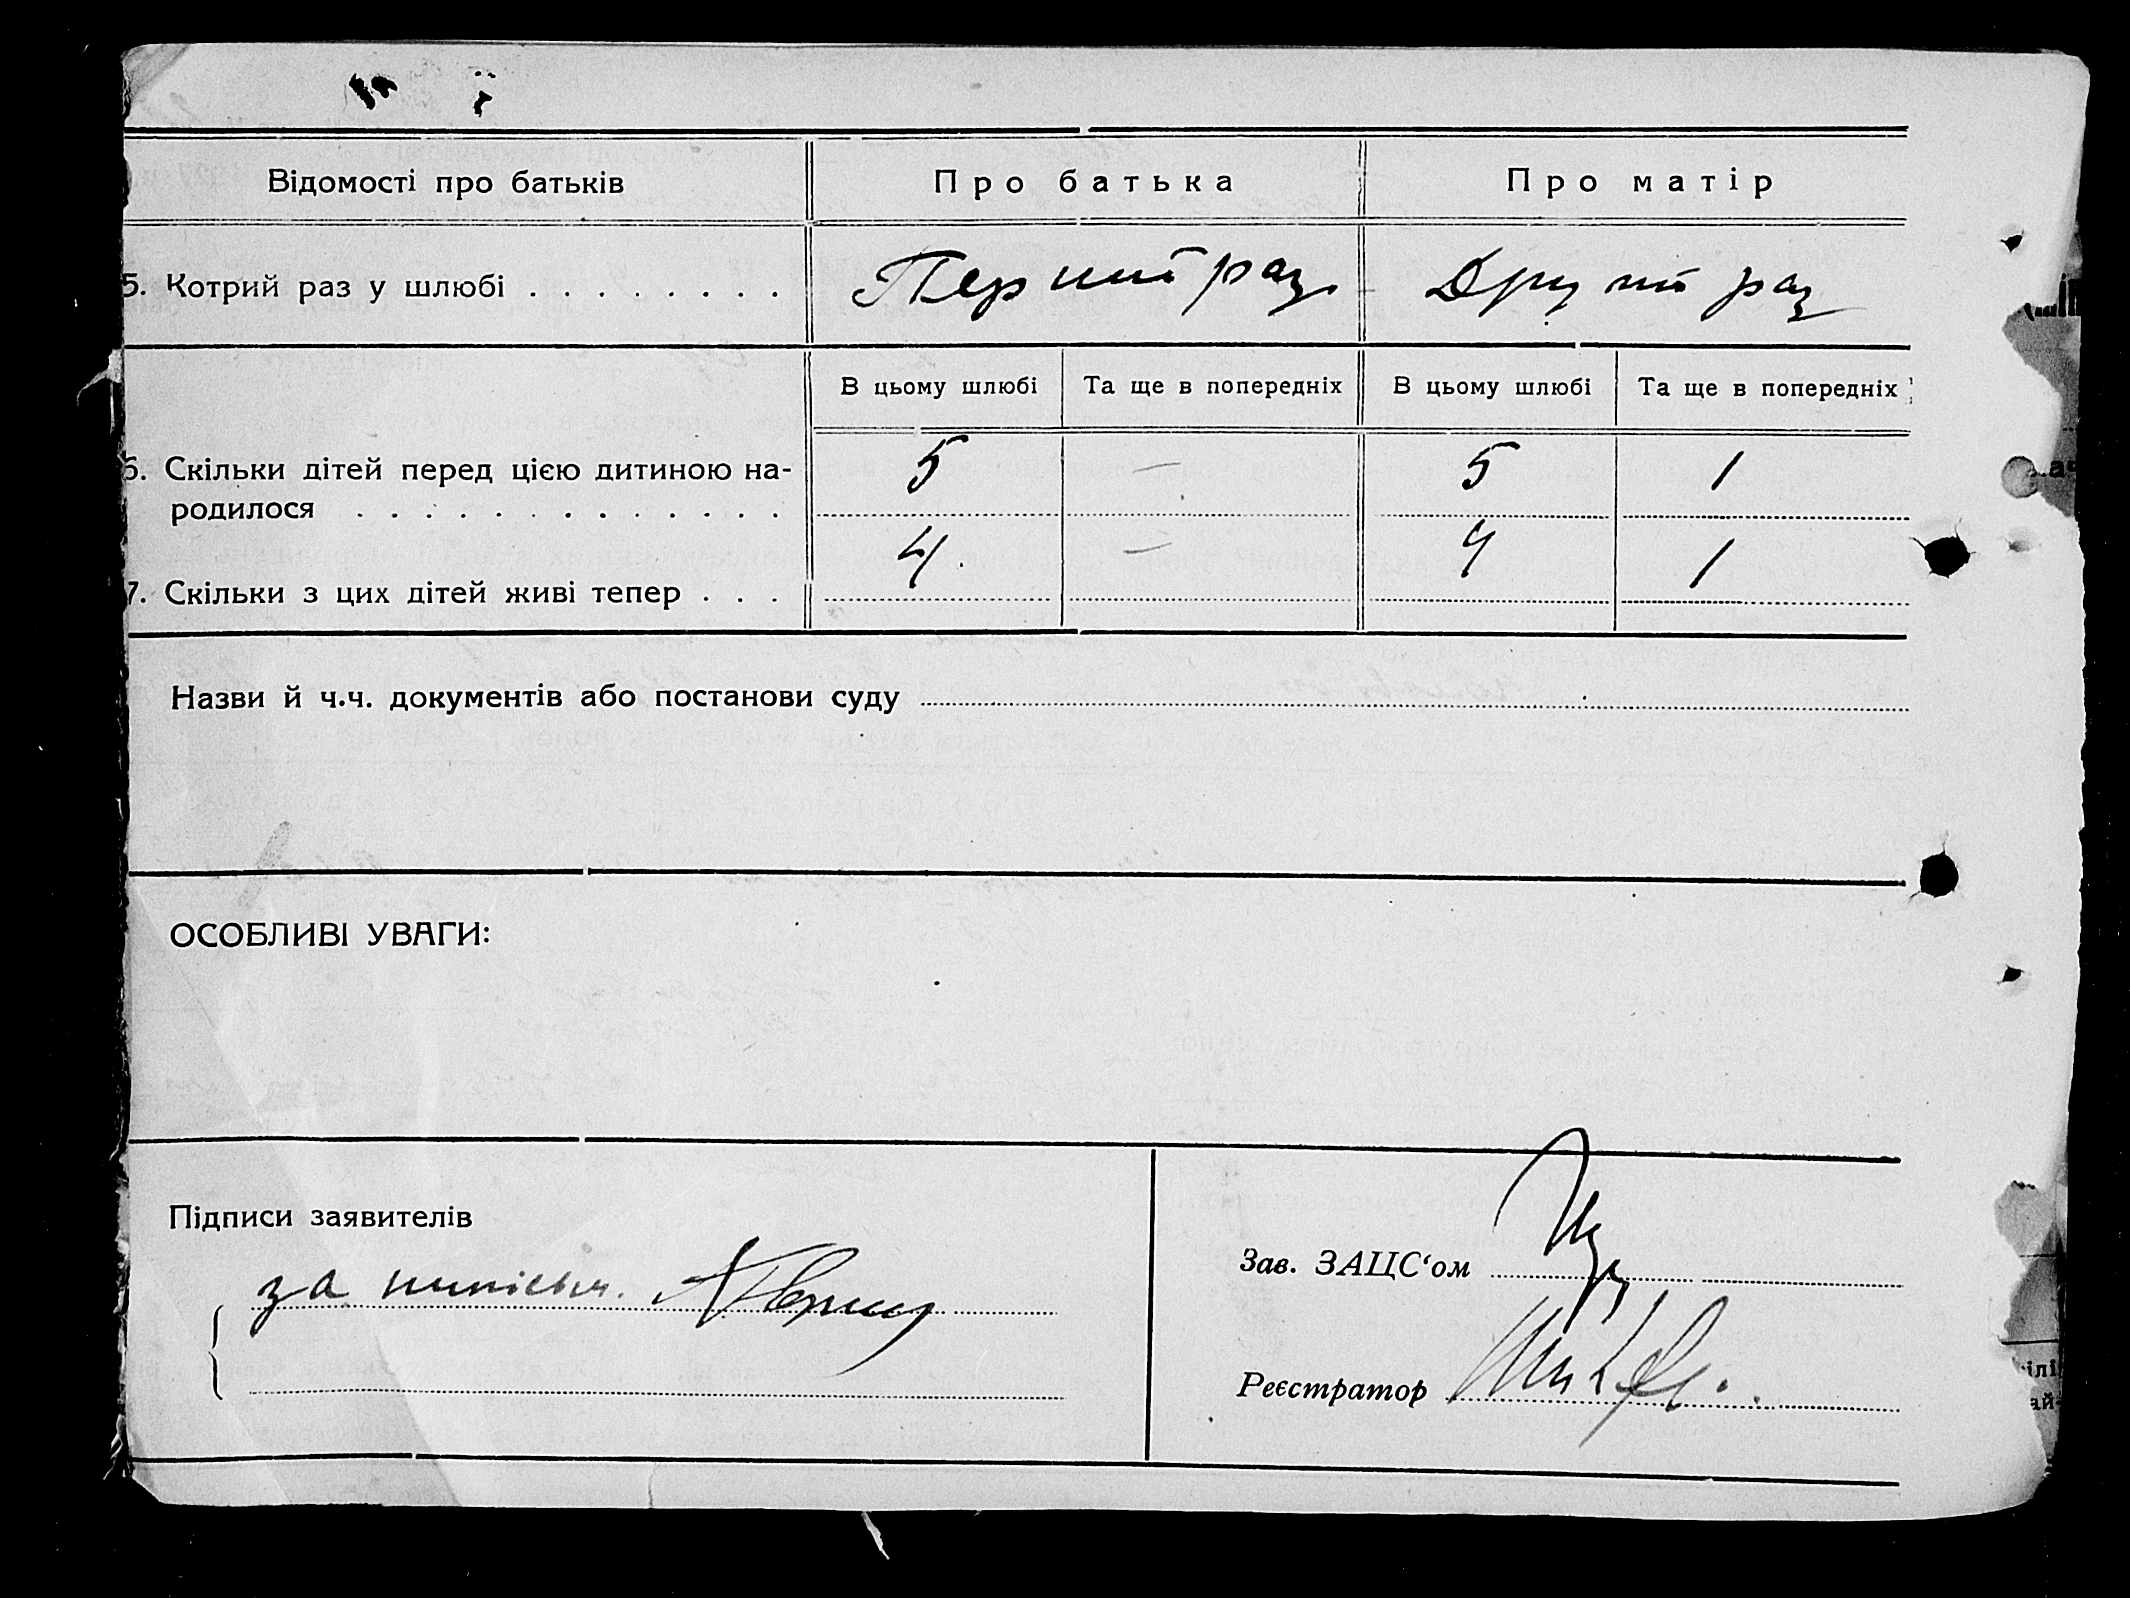 Відомості про батьків Про батька Про матір
5. Котрий раз у шлюбі . . . . . . . . Перший раз Другий раз
В цьому шлюбі Та ще в попередніх В цьому шлюбі Та ще в попередніх
6. Скільки дітей перед цією дитиною на- 5 — 5 1
родилося . . . . . . . . . . . . .
7. Скільки з цих дітей живі тепер . . . 4 — 4 1
Назви й ч.ч. документів або постанови суду
ОСОБЛИВІ УВАГИ:
Підписи заявителів
за
Зав. ЗАЦС‘ом
Реєстратор